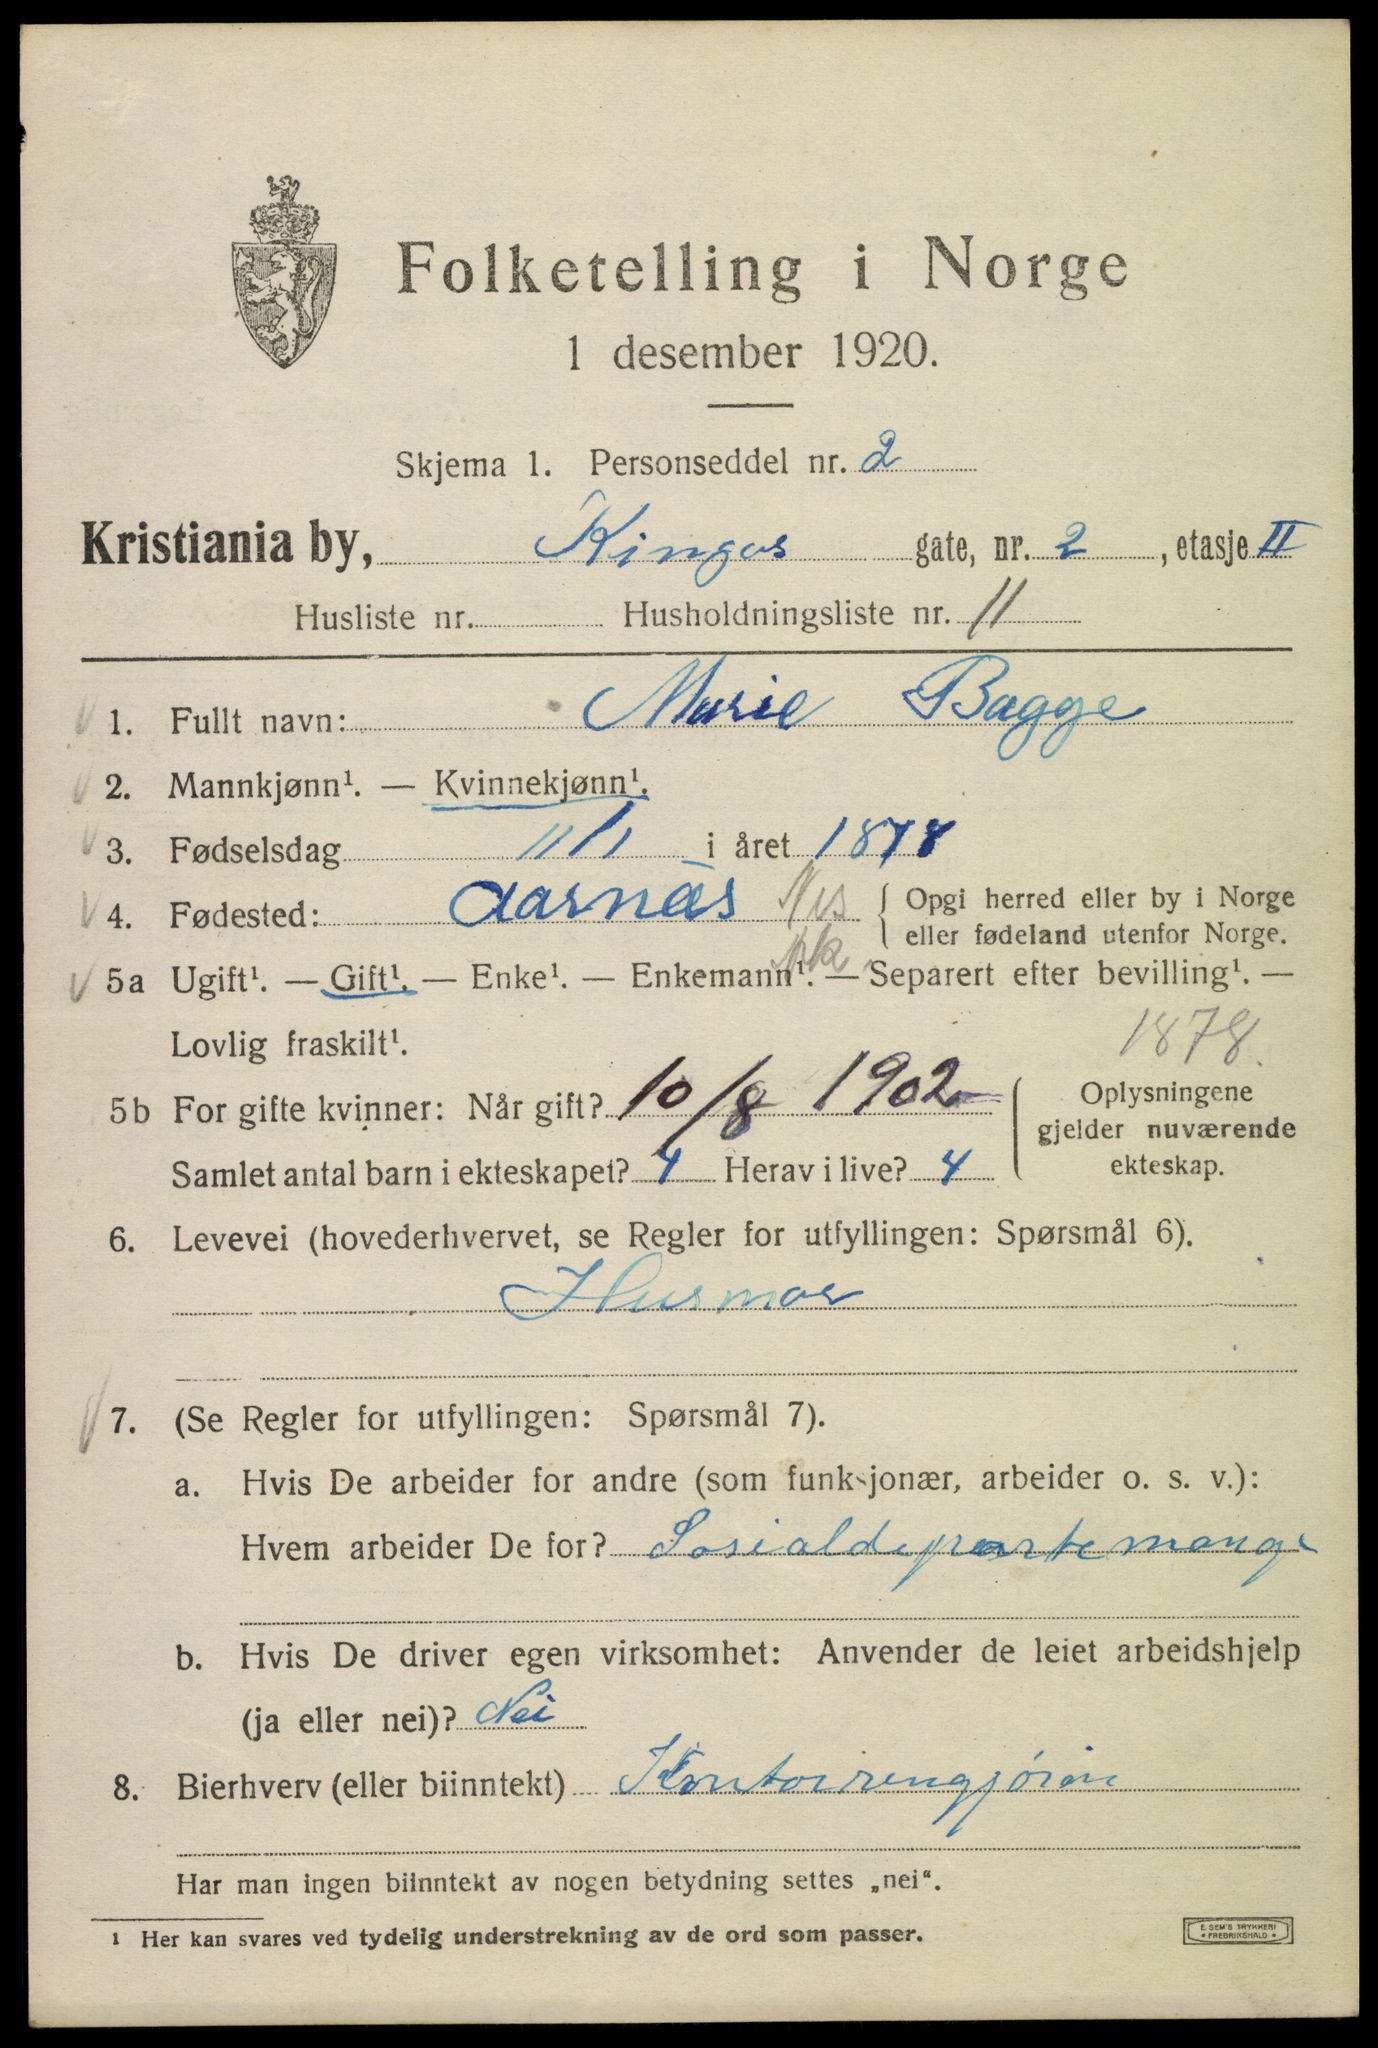 Folketelling i Norge
1 desember 1920.
Skjema 1. Personseddel nr. 2
Kristiania by, Kingos gate, nr. 2, etasje II
Husliste nr. Husholdningsliste nr. 11
1. Fullt navn: Marie Bagge
2. Mannkjønn¹. — Kvinnekjønn¹.
3. Fødselsdag 11/1 i året 1878
4. Fødested: Aarnæs Nes { Opgi herred eller by i Norge
eller fødeland utenfor Norge.
Ak
5a Ugift¹. — Gift¹. — Enke¹. — Enkemann¹. — Separert efter bevilling¹. —
Lovlig fraskilt¹. 1878.
5b For gifte kvinner: Når gift? 10/8 1902 { Oplysningene
gjelder nuværende
Samlet antal barn i ekteskapet? 4 Herav i live? 4 ekteskap.
6. Levevei (hovederhvervet, se Regler for utfyllingen: Spørsmål 6).
Husmor
7. (Se Regler for utfyllingen: Spørsmål 7).
a. Hvis De arbeider for andre (som funksjonær, arbeider o. s. v.):
Hvem arbeider De for? Sosialdepartemang
b. Hvis De driver egen virksomhet: Anvender de leiet arbeidshjelp
(ja eller nei)? Nei
8. Bierhverv (eller biinntekt) Kontorrengjøring
Har man ingen biinntekt av nogen betydning settes „nei“.
¹ Her kan svares ved tydelig understrekning av de ord som passer.
E. SEM'S TRYKKERI
* FREDRIKSHALD *